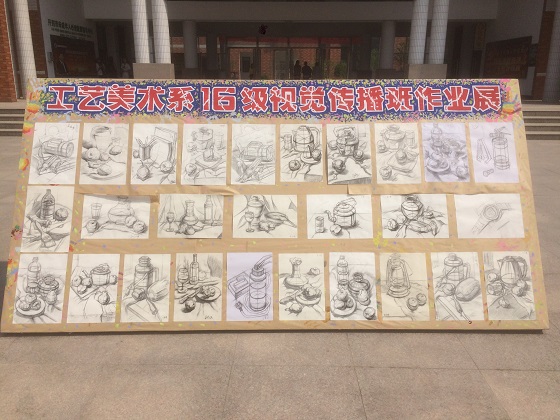 工艺美术系16级视觉传播班作业展